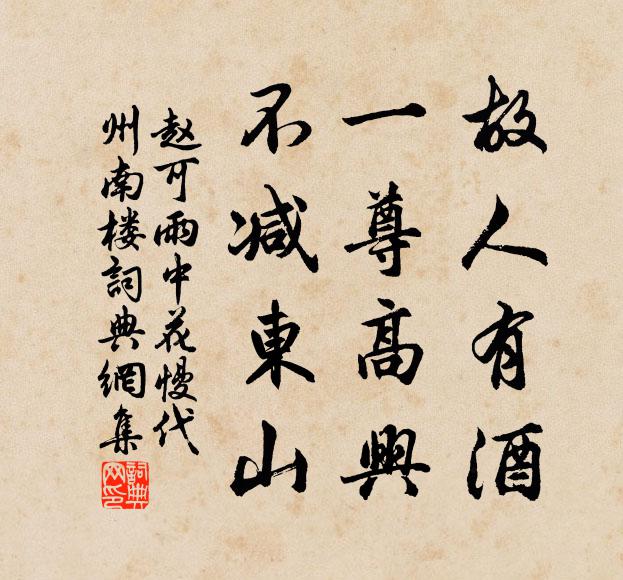 故人有酒
一尊高興
不減東山
赵可雨中花慢代
州南楼詞典網集
詞典网印